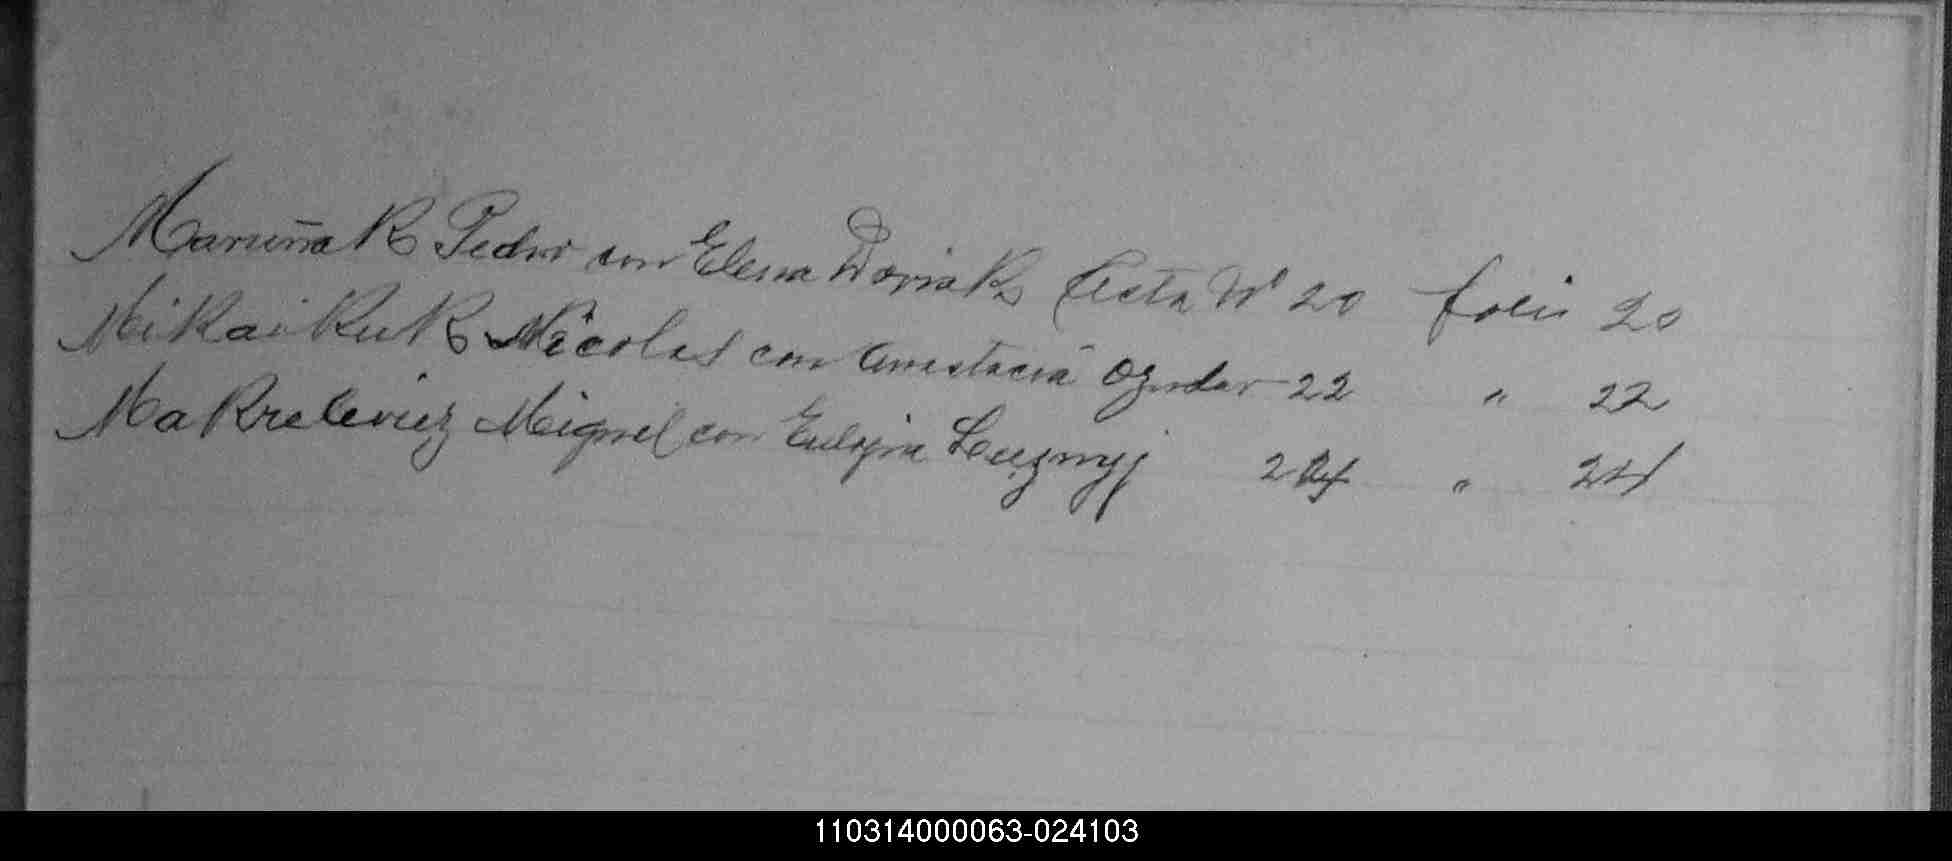 Maruñak Pedro con Elena Doriak Acta Nº 20 folio 20
Mikaikuk Nicolas con Anestacia Ozudar 22 " 22
Makrelevicz Miguel con Eulogia Luznyj 24 " 24
110314000063-024103